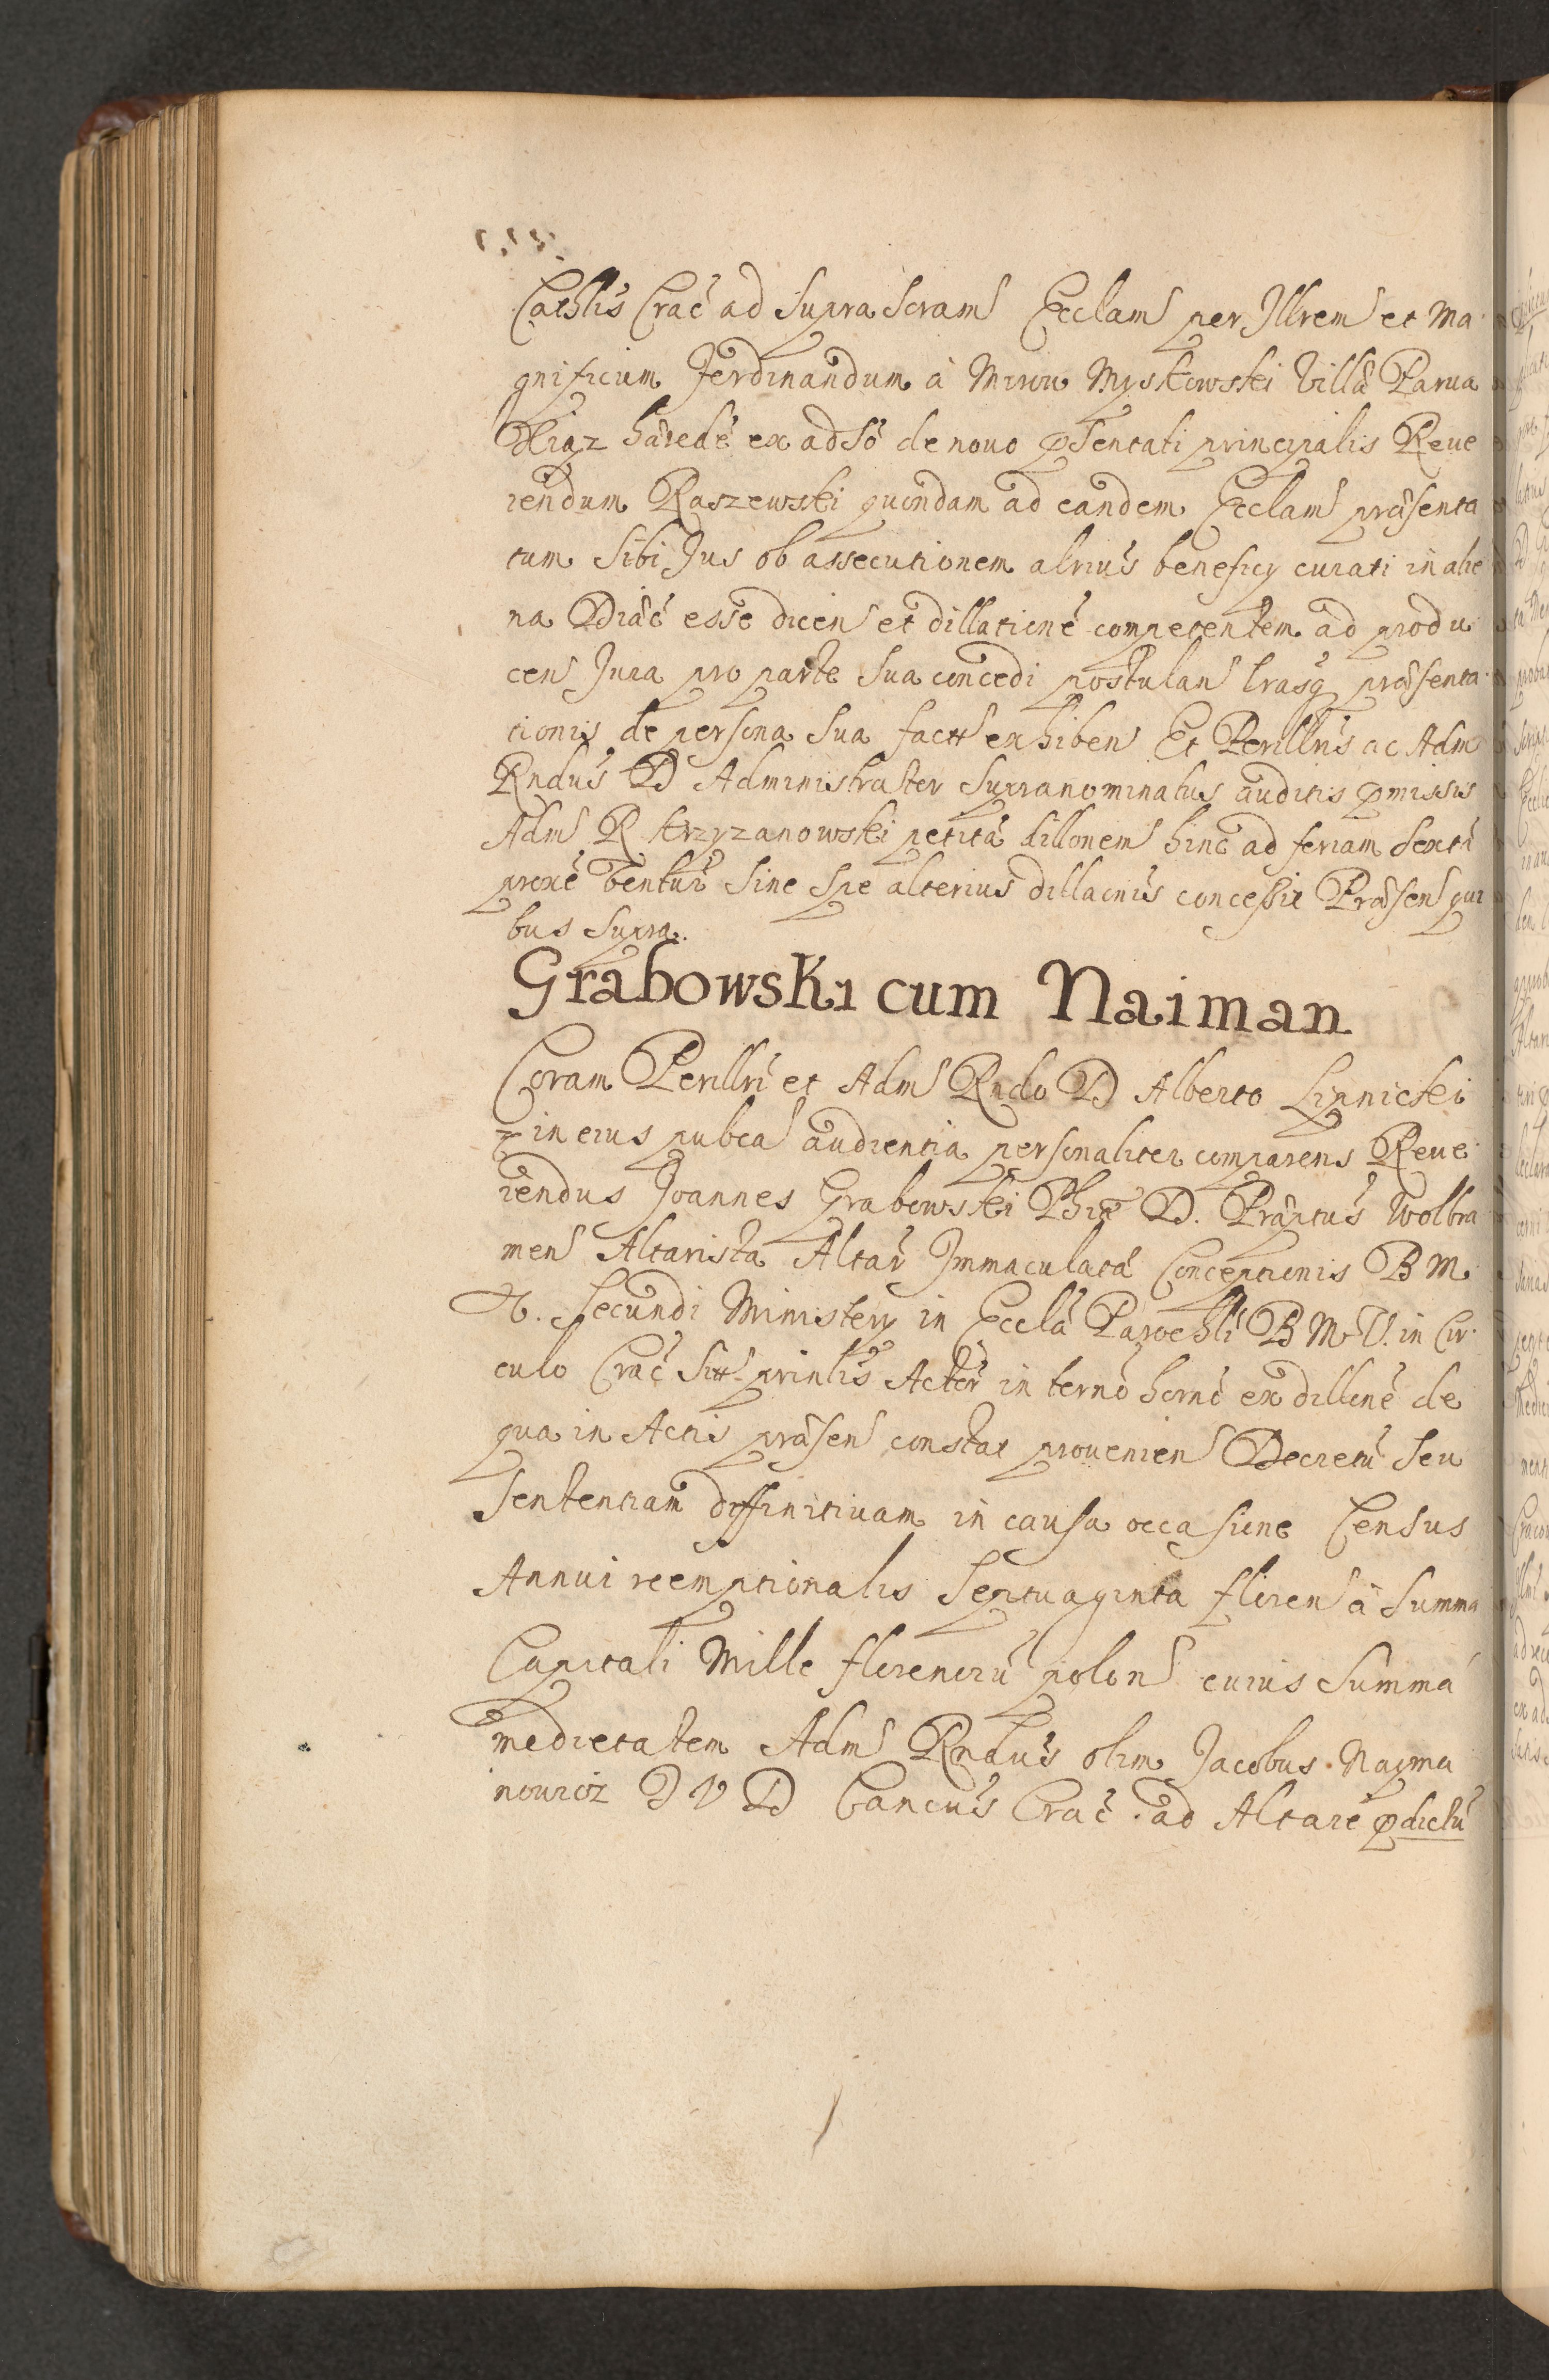 Cathlis Crac̃ ad supra scram Ecclam per Illrem et Ma
gnificum Ferdinandum à Mirow Myskowski Villæ Parua
Xiąz hæredẽ ex adsõ de nouo pñsentati principalis Reue
rendum Raszewski quondam ad eandem Ecclam præsenta
tum sibi Jus ob assecutionem alriũs beneficy curati in alie
na Diæc̃ esse dicen et dillationẽ competentem ad produ
cen Jura pro parte sua concedi postulan lrasq præsenta
tionis de persona sua factt exhiben Et Perillris ac Adm
Rndus D Administrator supranominatus auditis pmissis
Adm R Krzyzanowski petitã dillonem hinc ad feriam sextã
proxẽ ventuř sine spe alterius dillaonis concessit Præsen qui
bus supra.
Grabowski cum Naiman
Coram Perillri et Adm Rndo D Alberto Lipnicki
in eius pubca audientia personaliter comparens Reue
rendus Joannes Grabowski Phiæ D. Præptus Wolbra
men Altarista Altař Immaculatæ Conceptionis B M
V. Secundi Ministery in Ecclã Parochli B M V. in Cir
culo Crac̃ sitt prinlis Actor in termõ horně ex dillonẽ de
qua in Actis præsen constat prouenien Decretũ seu
Sententiam diffinitiuam in causa occasione Census
Annui reemptionalis Septuaginta floren à Summa
Capitali Mille florenorũ polon cuius Summæ
medietatem Adm Rndus olim Jacobus Nayma
nowicz J V D Cancus Crac̃ ad Altare pdictũ